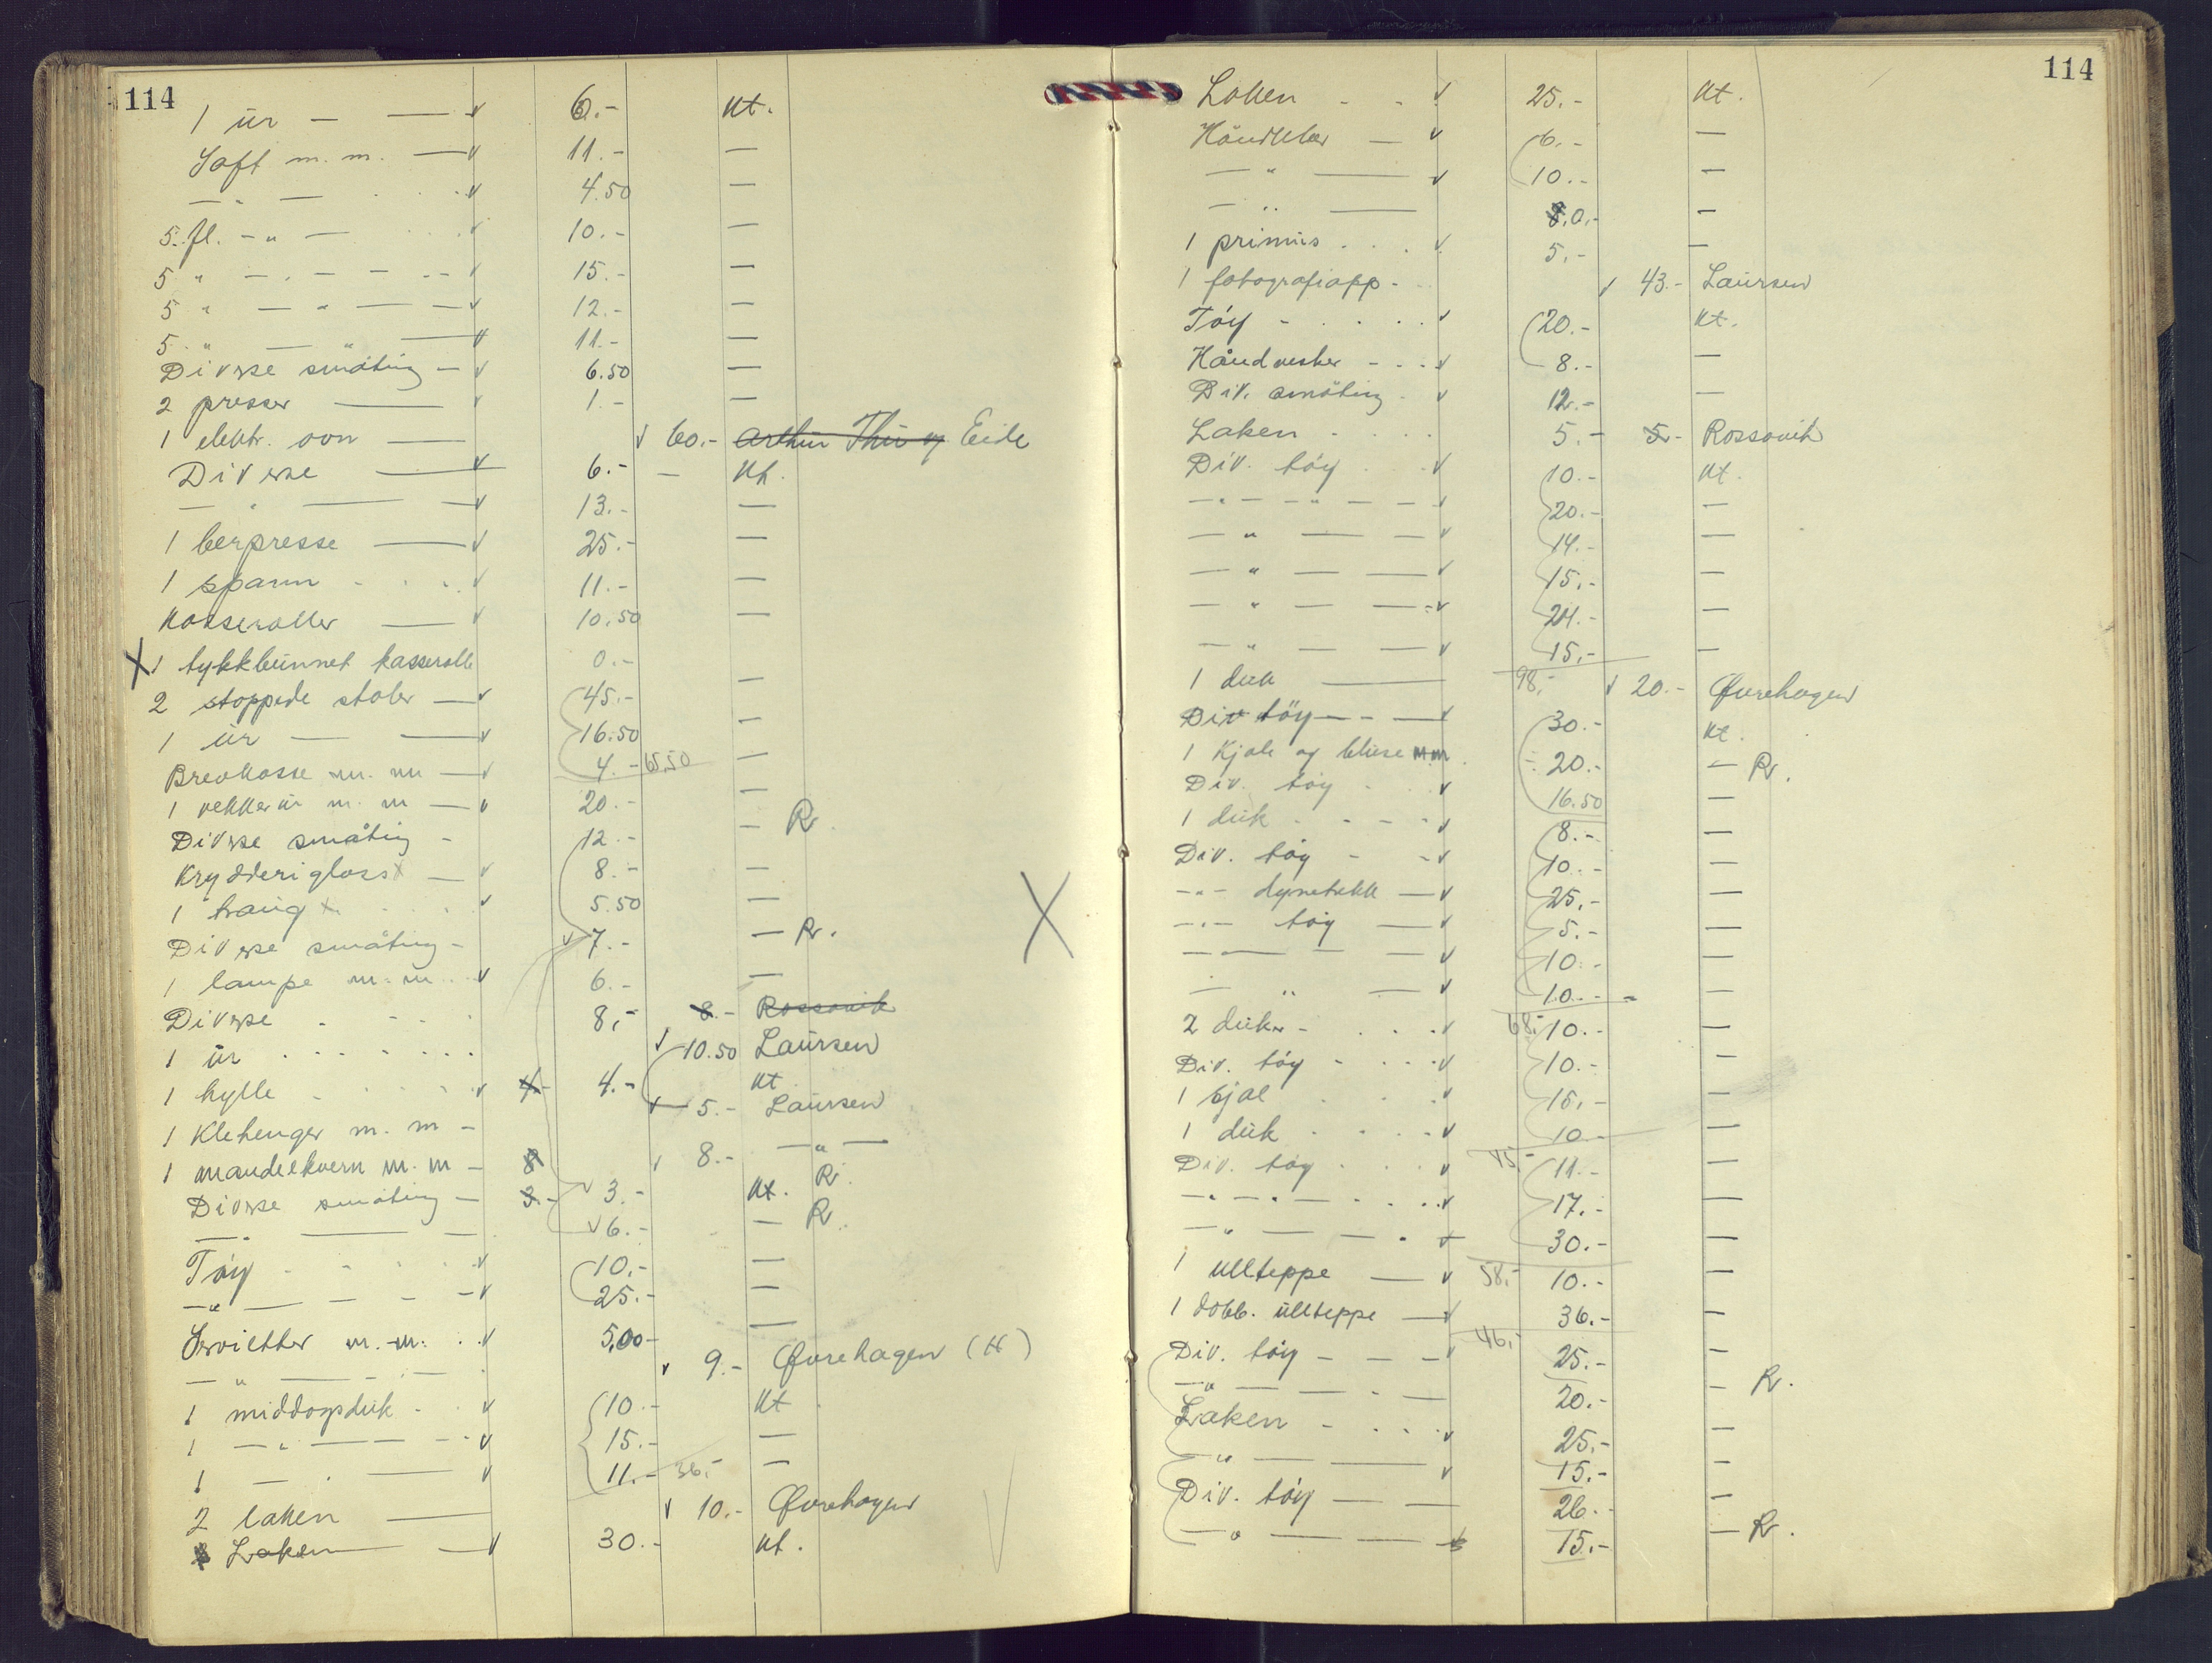 114
1 ur — — v 6.- Kt.
Saft m. m. — v 11.- —
— " — v 4.50 —
5 fl. - " — v 10.- —
5 " — " — v 15.- —
5 " — " — v 12.- —
5 " — " — v 11.- —
Diverse småting — v 6.50 —
2 presser — v 1.- —
1 elektr. ovn — v 60.- Arthur Thu og Eide
Diverse — v 6.- — Kt.
— " — v 13.- —
1 bærpresse — v 25.- —
1 spann v 11.- —
Kasseroller — v 10.50 —
X 1 tykkbunnet kasserolle 0.-
2 stoppede stoler — v 45.- —
1 ur — — v 16.50 —
Brevkasse m. m — v 4.- 65.50 —
1 vekkerur m. m — v 20.- —
Diverse småting - 12.- — R.
Krydderiglass — v 8.- —
1 traug v 5.50 —
Diverse småting - v 7.- — R.
1 lampe m. m. v 6.- —
Diverse 8,- 8.- Rossavik
1 ur v 10.50 Laursen
1 hylle v 4- 4.- Kt
1 Klehenger m. m - v 5.- Laursen
1 mandelkvern m. m - 8 v 8.- — " —
Diverse småting — 3.- v 3.- Kt. R.
— " — v 6.- — R.
Tøy v 10.- —
— " — v 25.- —
Servietter m. m. v 5,00- —
— " — v 9.- Øvrehagen (H)
1 middagsduk v 10.- Kt
1 — " — v 15.- —
1 — " — v 11.- 36.- —
2 laken — v 10.- Øvrehagen
Laken — v 30.- Kt.
114
Laken - - v 25.- Kt.
Håndklær — v 6.- —
— " — v 10.- —
— " — 8.0.- —
1 primus v 5.- —
1 fotografiapp. v 43.- Laursen
Tøy v 20.- Kt.
Håndvesker v 8.- —
Div. småting v 12.- —
Laken 5.- 5.- Rossavik
Div. tøy v 10.- Kt.
— " — " — 20.- —
— " — v 14.- —
— " — v 15.- —
— " — v 24.- —
— " — v 15.- —
1 duk — 98,- v 20.- Øvrehagen
Div tøy — v 30.- Kt.
1 Kjole og bluse m m. 20.- — R.
Div. tøy v 16.50 —
1 duk v 8.- —
Div. tøy v 10.- —
- " - dynetrekk — v 25.- —
- " - tøy — v 5.- —
- " — v 10.- —
— " — v 10.- —
2 duker v 68.- 10.- —
Div. tøy v 10.- —
1 sjal v 15.- —
1 duk v 10 —
Div. tøy v 45.- 11.- —
— " — " — v 17.- —
— " — v 30.- —
1 ullteppe — v 58.- 10.- —
1 dobb. ullteppe — v 36.- —
Div. tøy — v 46.- 25.- —
— " — 20.- — R.
Laken v 25.- —
— " — v 15.- —
Div. tøy — 26.- —
— " — 15.- — R.